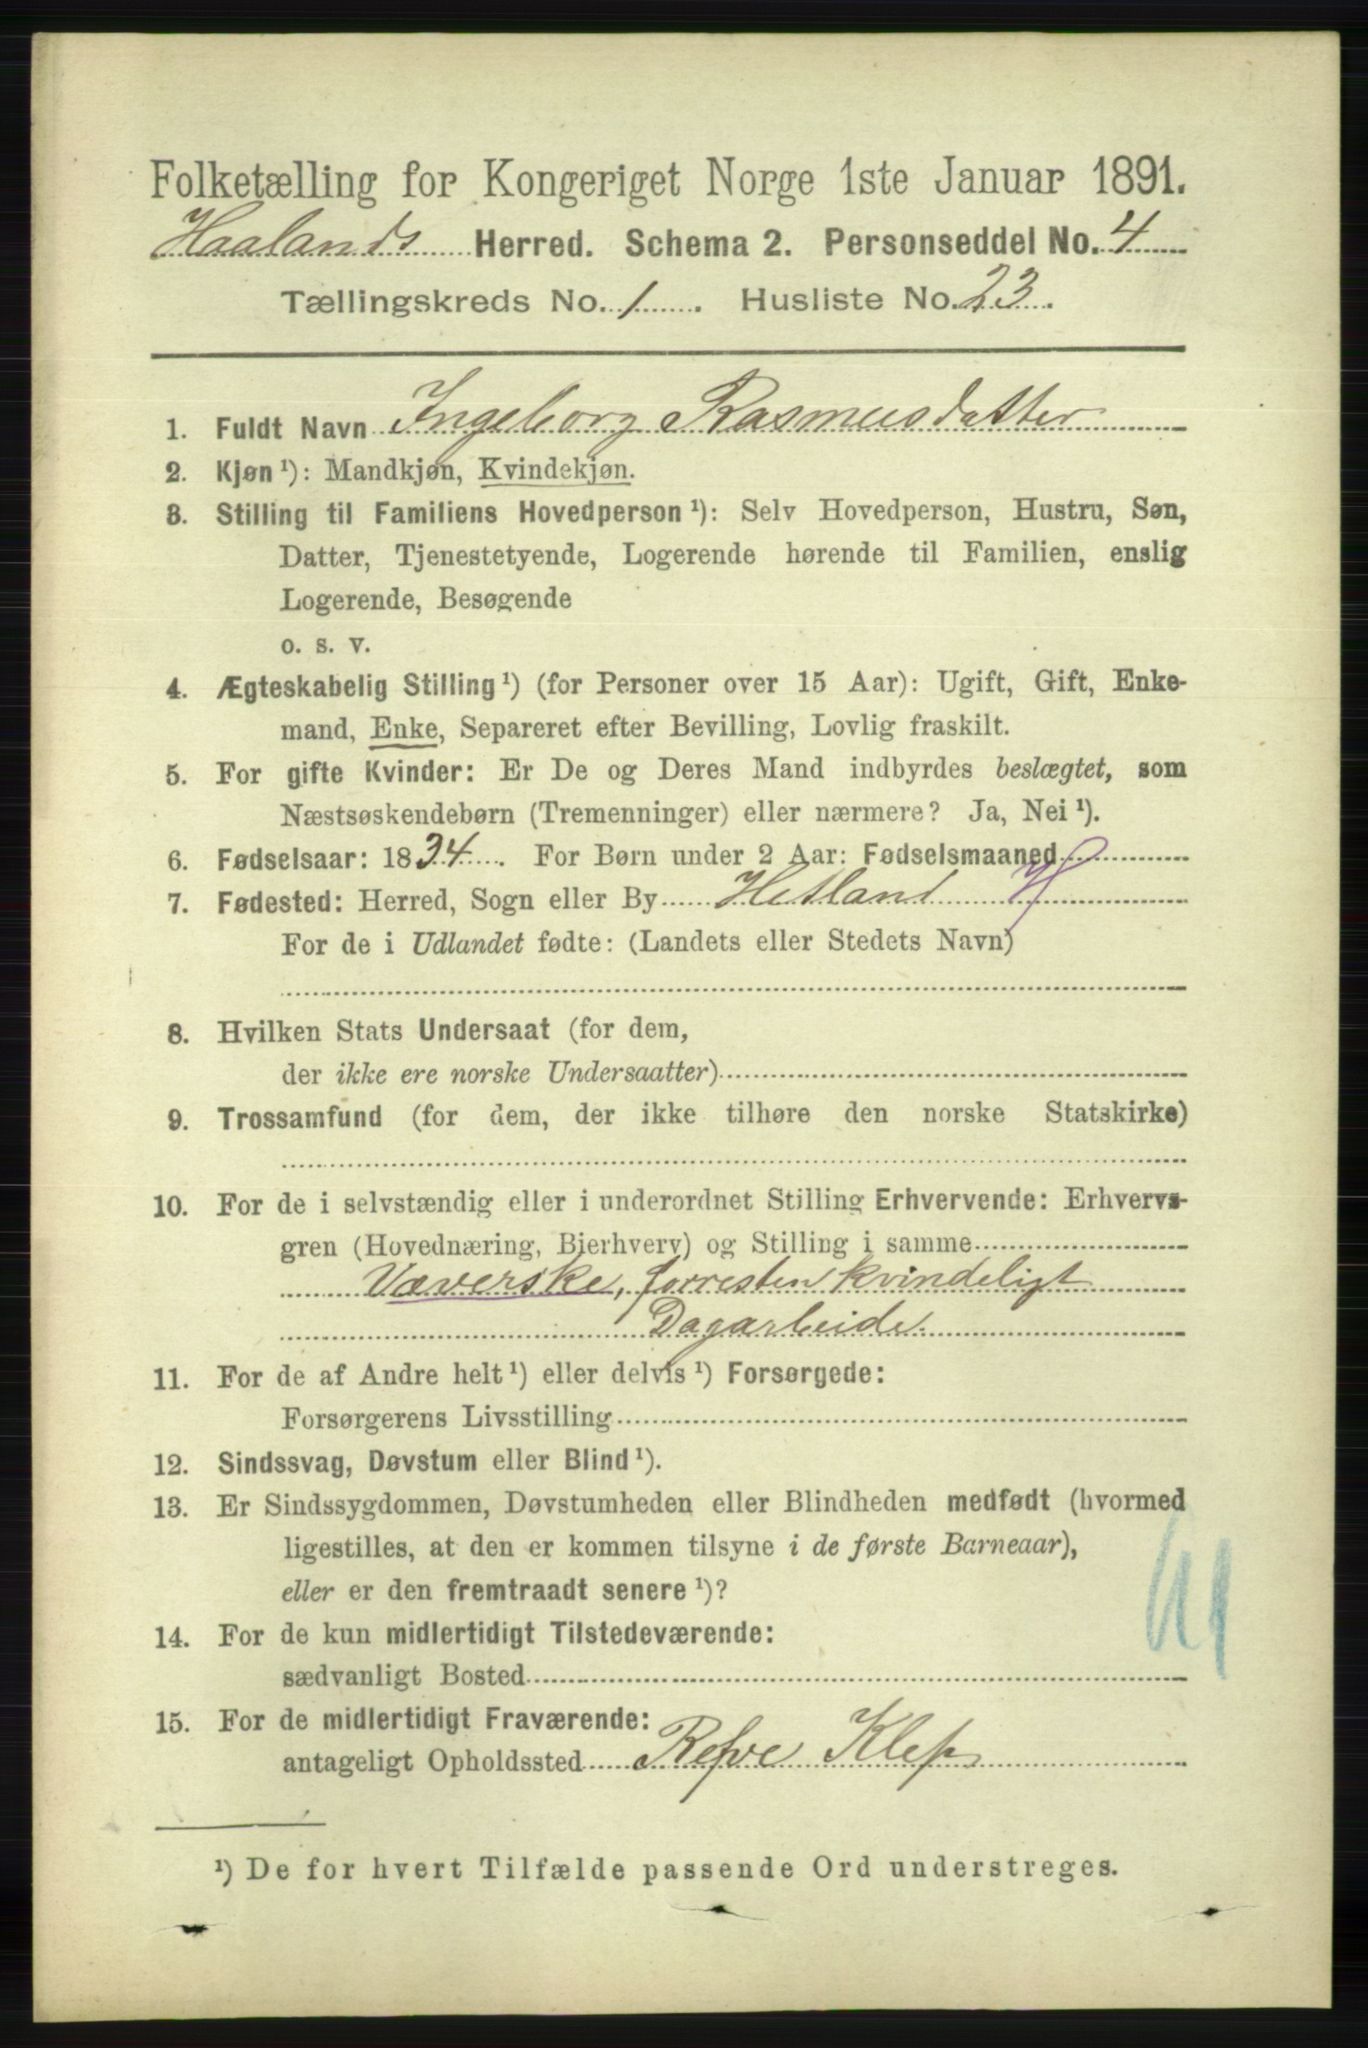 Folketælling for Kongeriget Norge 1ste Januar 1891.
Haalands Herred. Schema 2. Personseddel No. 4
Tællingskreds No. 1. Husliste No. 23.
1. Fuldt Navn Ingeborg Rasmusdatter
2. Kjøn ¹): Mandkjøn, Kvindekjøn.
3. Stilling til Familiens Hovedperson ¹): Selv Hovedperson, Hustru, Søn,
Datter, Tjenestetyende, Logerende hørende til Familien, enslig
Logerende, Besøgende
o. s. v.
4. Ægteskabelig Stilling ¹) (for Personer over 15 Aar): Ugift, Gift, Enke-
mand, Enke, Separeret efter Bevilling, Lovlig fraskilt.
5. For gifte Kvinder: Er De og Deres Mand indbyrdes beslægtet, som
Næstsøskendebørn (Tremenninger) eller nærmere? Ja, Nei ¹).
6. Fødselsaar: 1834. For Børn under 2 Aar: Fødselsmaaned
7. Fødested: Herred, Sogn eller By Hetland H
For de i Udlandet fødte: (Landets eller Stedets Navn)
8. Hvilken Stats Undersaat (for dem,
der ikke ere norske Undersaatter)
9. Trossamfund (for dem, der ikke tilhøre den norske Statskirke)
10. For de i selvstændig eller i underordnet Stilling Erhvervende: Erhvervs-
gren (Hovednæring, Bierhverv) og Stilling i samme
Væverske, forresten kvindeligt
Dagarbeide.
11. For de af Andre helt ¹) eller delvis ¹) Forsørgede:
Forsørgerens Livsstilling
12. Sindssvag, Døvstum eller Blind ¹).
13. Er Sindssygdommen, Døvstumheden eller Blindheden medfødt (hvormed
ligestilles, at den er kommen tilsyne i de første Barneaar),
eller er den fremtraadt senere ¹)?
14. For de kun midlertidigt Tilstedeværende:
sædvanligt Bosted
15. For de midlertidigt Fraværende:
antageligt Opholdssted Refve Klep
¹) De for hvert Tilfælde passende Ord understreges.